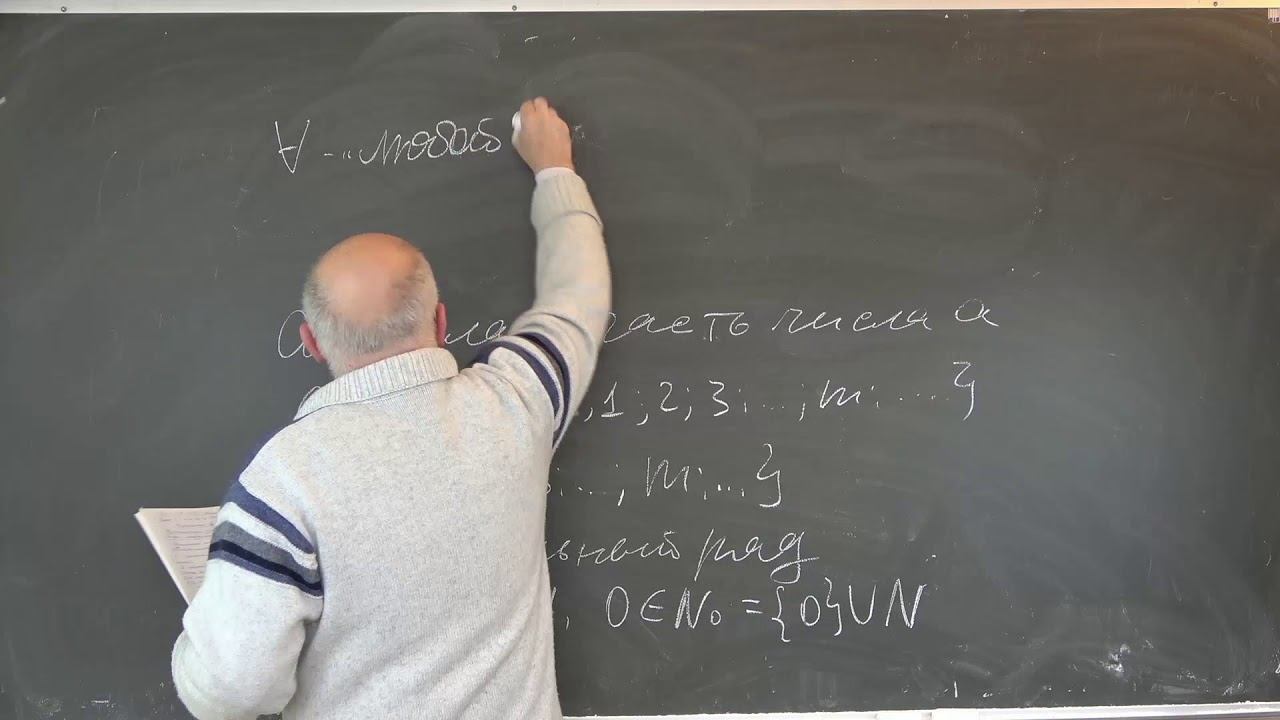 ∀ - „любой
часть числа a
,1;2;3;...;m;....}
...;m;...}
ьный ряд
, 0∈N₀={0}∪N